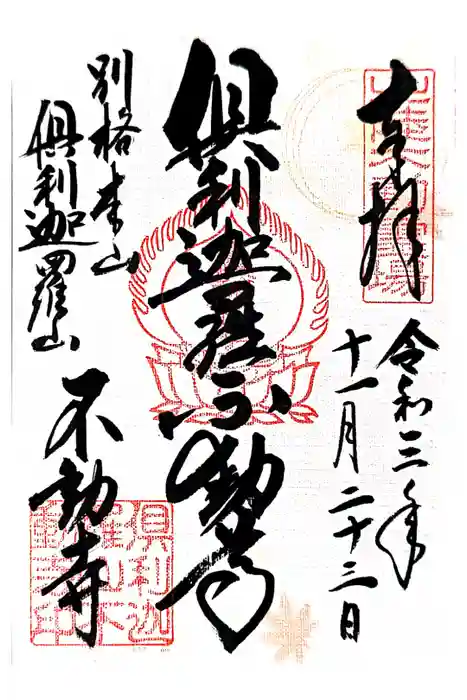 奉拝
令和三年
十一月二十三日
俱利迦羅不動尊
別格本山
俱利迦羅山
不動寺
俱利迦
羅山不
動寺印